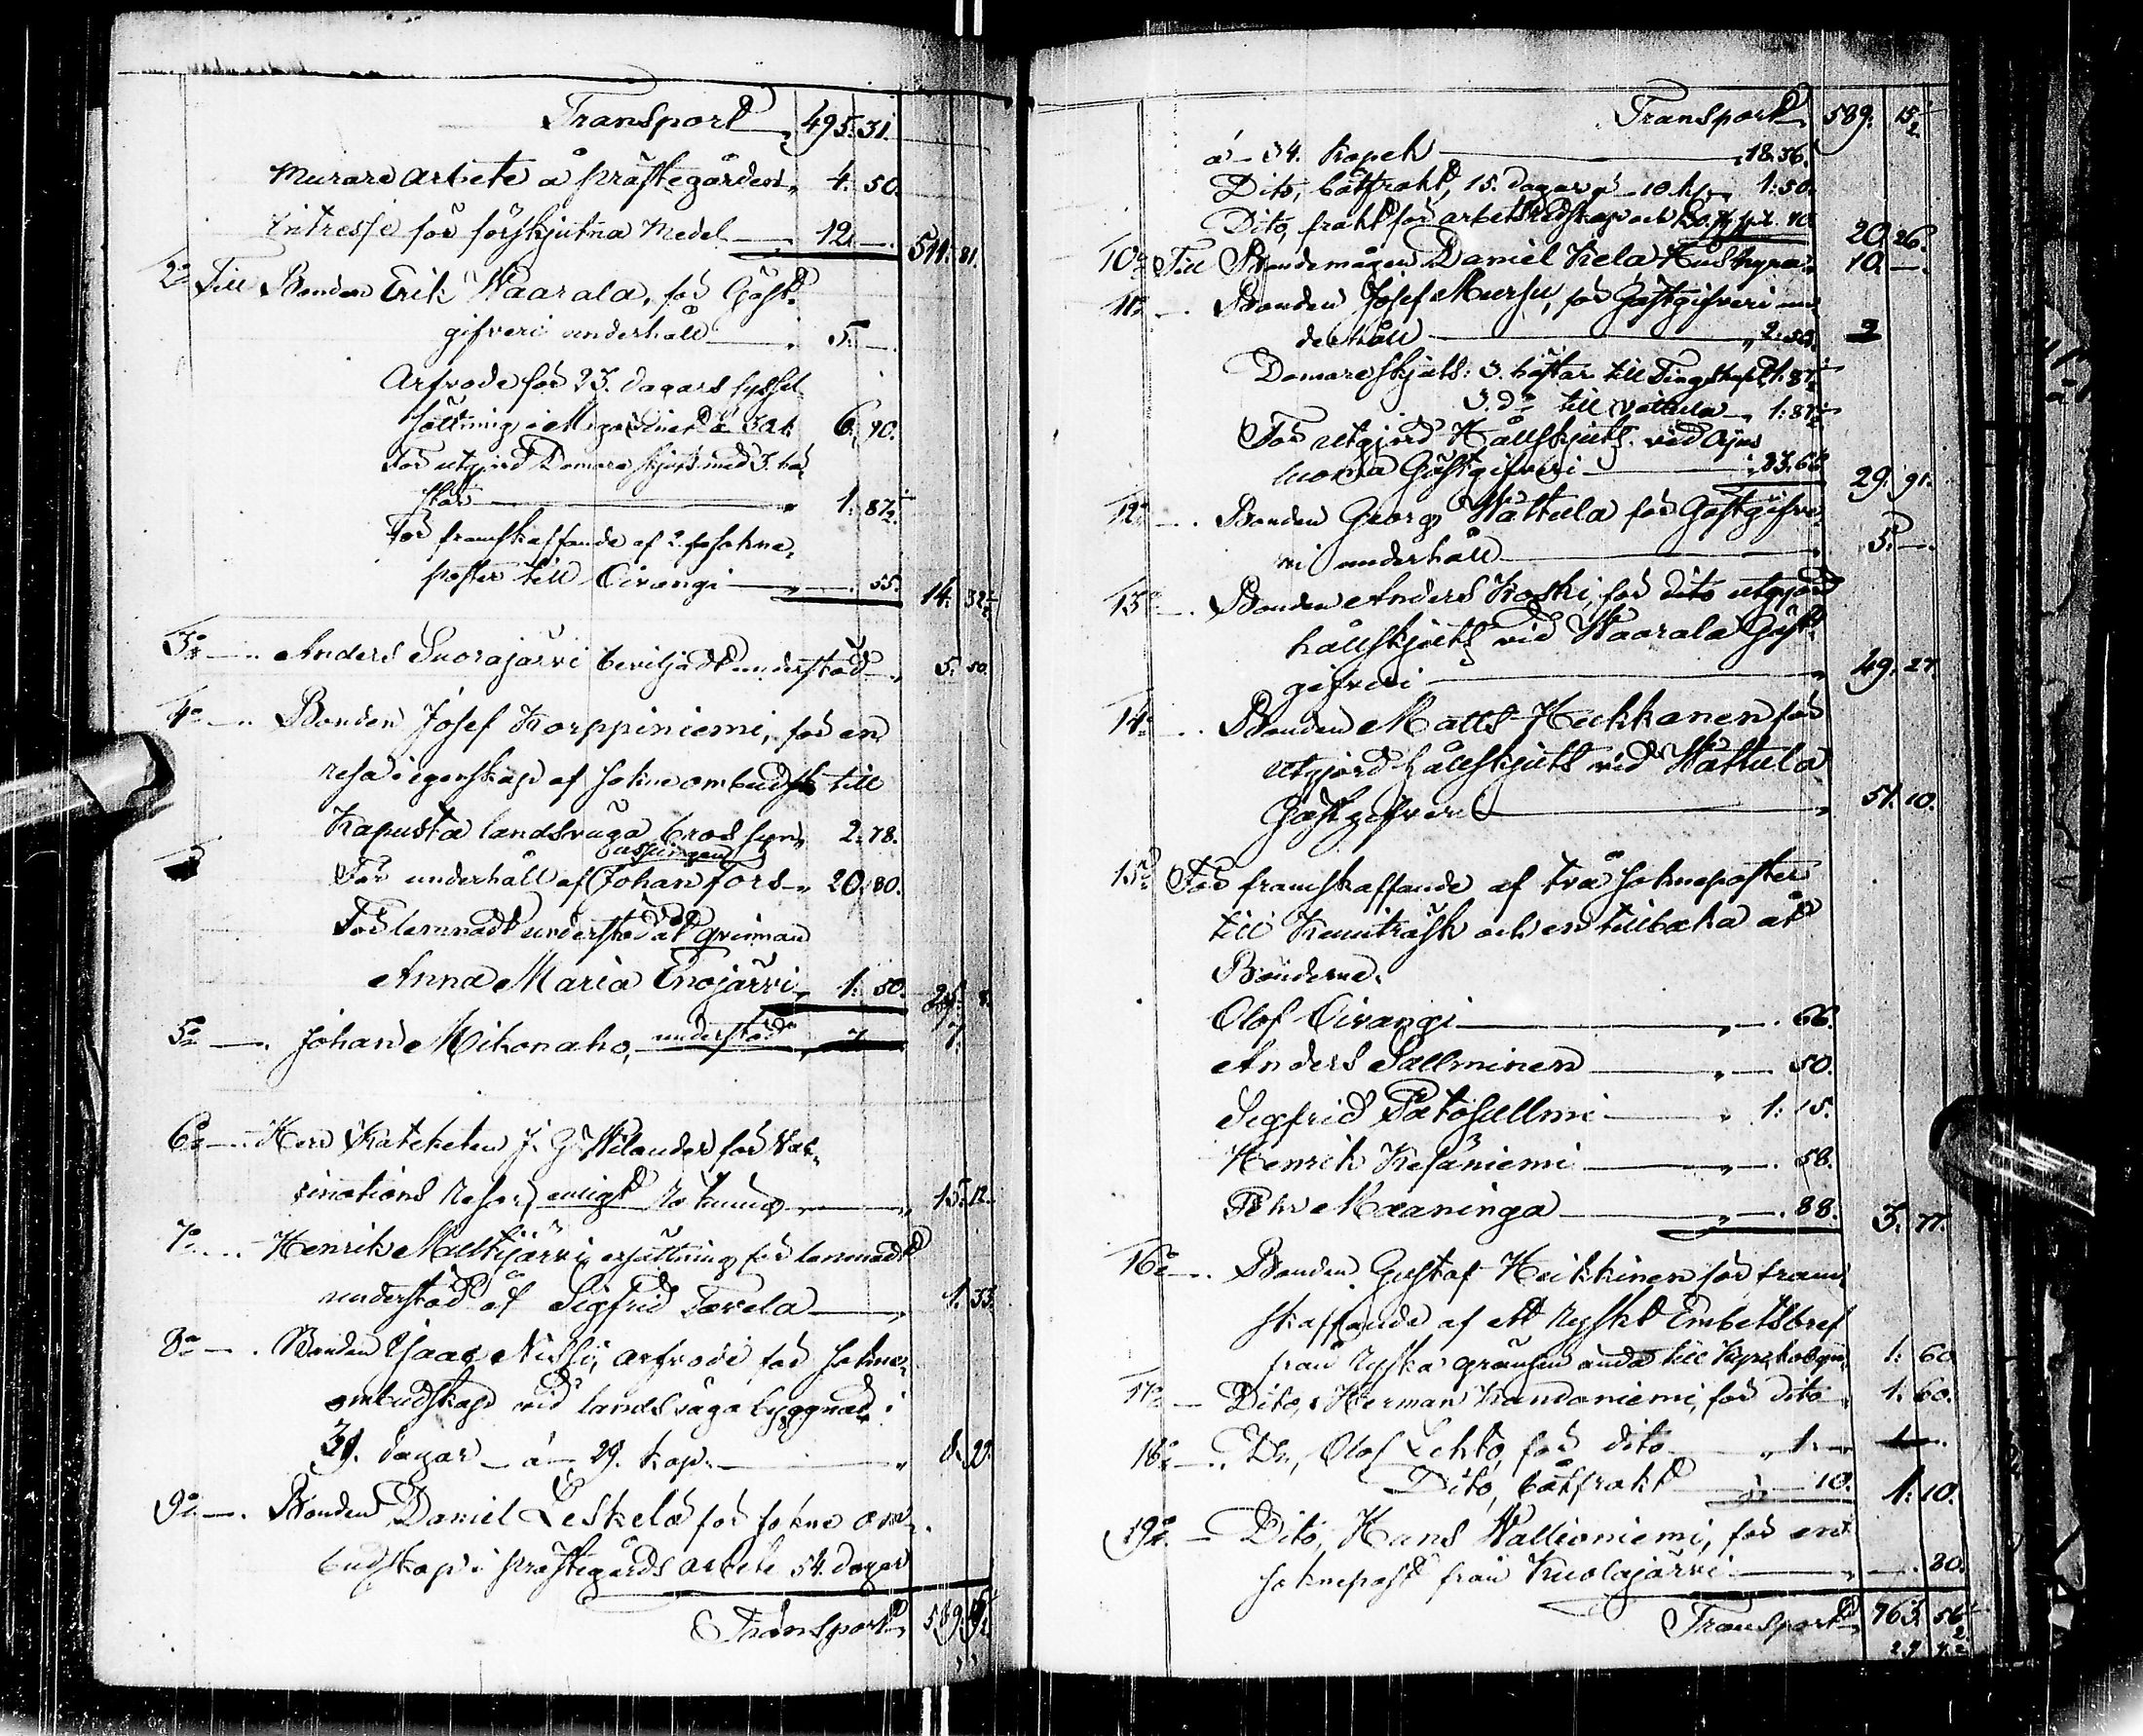 Transport 495. 31.
Murare arbete å prästegården 4. 50.
Intresse för förskjutna Medel — 12. — 511. 81.
2o Till Bonden Erik Waarala, för Gäst-
gifveri underhåll — 5. —
Arfvode för 23. dagars syssel-
sättning i Magasinet à 30 k. 6. 90.
För utgjord Domare skjuts med 3. hä-
star — 1. 87½.
För framskaffande af 2. sokne-
poster till Oivangi — 55. 14. 32½
3o — Anders Suorajärvi beviljadt understöd — 5. 50.
4o — Bonden Josef Korppiniemi, för en
resa i egenskap af sokneombudsk. till
Kapusta landsväga bros syn, 2. 78.
För underhåll af usslingen Johan Fors — 20. 80.
För lemnadt understöd åt qvinnan
Anna Maria Enojärvi, 1. 50. 25. 8.
5o — Johan Mikonaho, understöd 7 7.
6o — Herr Kateketen J. G. Wilander för Vac-
cinations resor, enligt räkning — 15. 12.
7o — Henrik Meltijärvi, ersättning för lemnadt
understöd åt Sigfrid Tavela — 1. 33.
8o — Bonden Isaac Nissi, arfvode för sokne-
ombudskap vid landsväga byggnad i
31. dagar à 29. kop. —
9o — Bonden Daniel Leskelä för sokne om-
budskap i prästegårds arbete 54. dagar
Transport 589. 15½
Transport 589. 15½
à 34. kopek — 18. 36.
Dito, båtfrakt, 15. dagar à 10. k. 1: 50.
Dito, frakt för arbetsredskap och 40. 20. 26.
10o Till Bondemågen Daniel Kela Hushyra 10. —
11o — Bonden Josef Mursu, för Gästgifveri un-
derhåll — 2: 50. 2
Domareskjuts: 3. hästar till Tingskap. 1. 87½
3. do till Vattula 1: 87½
För utgjord Hållskjuts vid Ajos
Gästgifveri — 23. 66 29. 91.
12o — Bonden Georg Wättula för Gästgifve-
ri underhåll — 5. —
13o — Bonden Anders Koski, för dito utgjord
hållskjuts vid Waarala Gäst-
gifveri — 49. 27.
14o — Bonden Matts Heikkanen för
utgjord hållskjuts vid Wättula
Gästgifveri — 51. 10.
15o För framskaffande af två sokneposter
till Kemiträsk och en tillbaka åt
Bönderne.
Olof Oivangi — 66.
Anders Sallminen — 50.
Sigfrid Patosallmi — 1: 15.
Henrik Kesäniemi — 58.
Pehr Maaninga — 88. 3. 77.
16o — Bonden Gustaf Heikkinen för fram-
skaffande af ett Ryskt Embetsbref
från Ryska gränsen ända till Kyrkobyn 1: 60
17o — Dito, Herman Kandoniemi, för dito 1: 60.
18o — Do, Olof Lehto, för dito 1. — 1 —
Dito, båtfrakt — 10. 1: 10.
19o — Dito, Hans Wallioniemi, för en
soknepost från Kuolajärvi — 80.
Transport 763. 56½